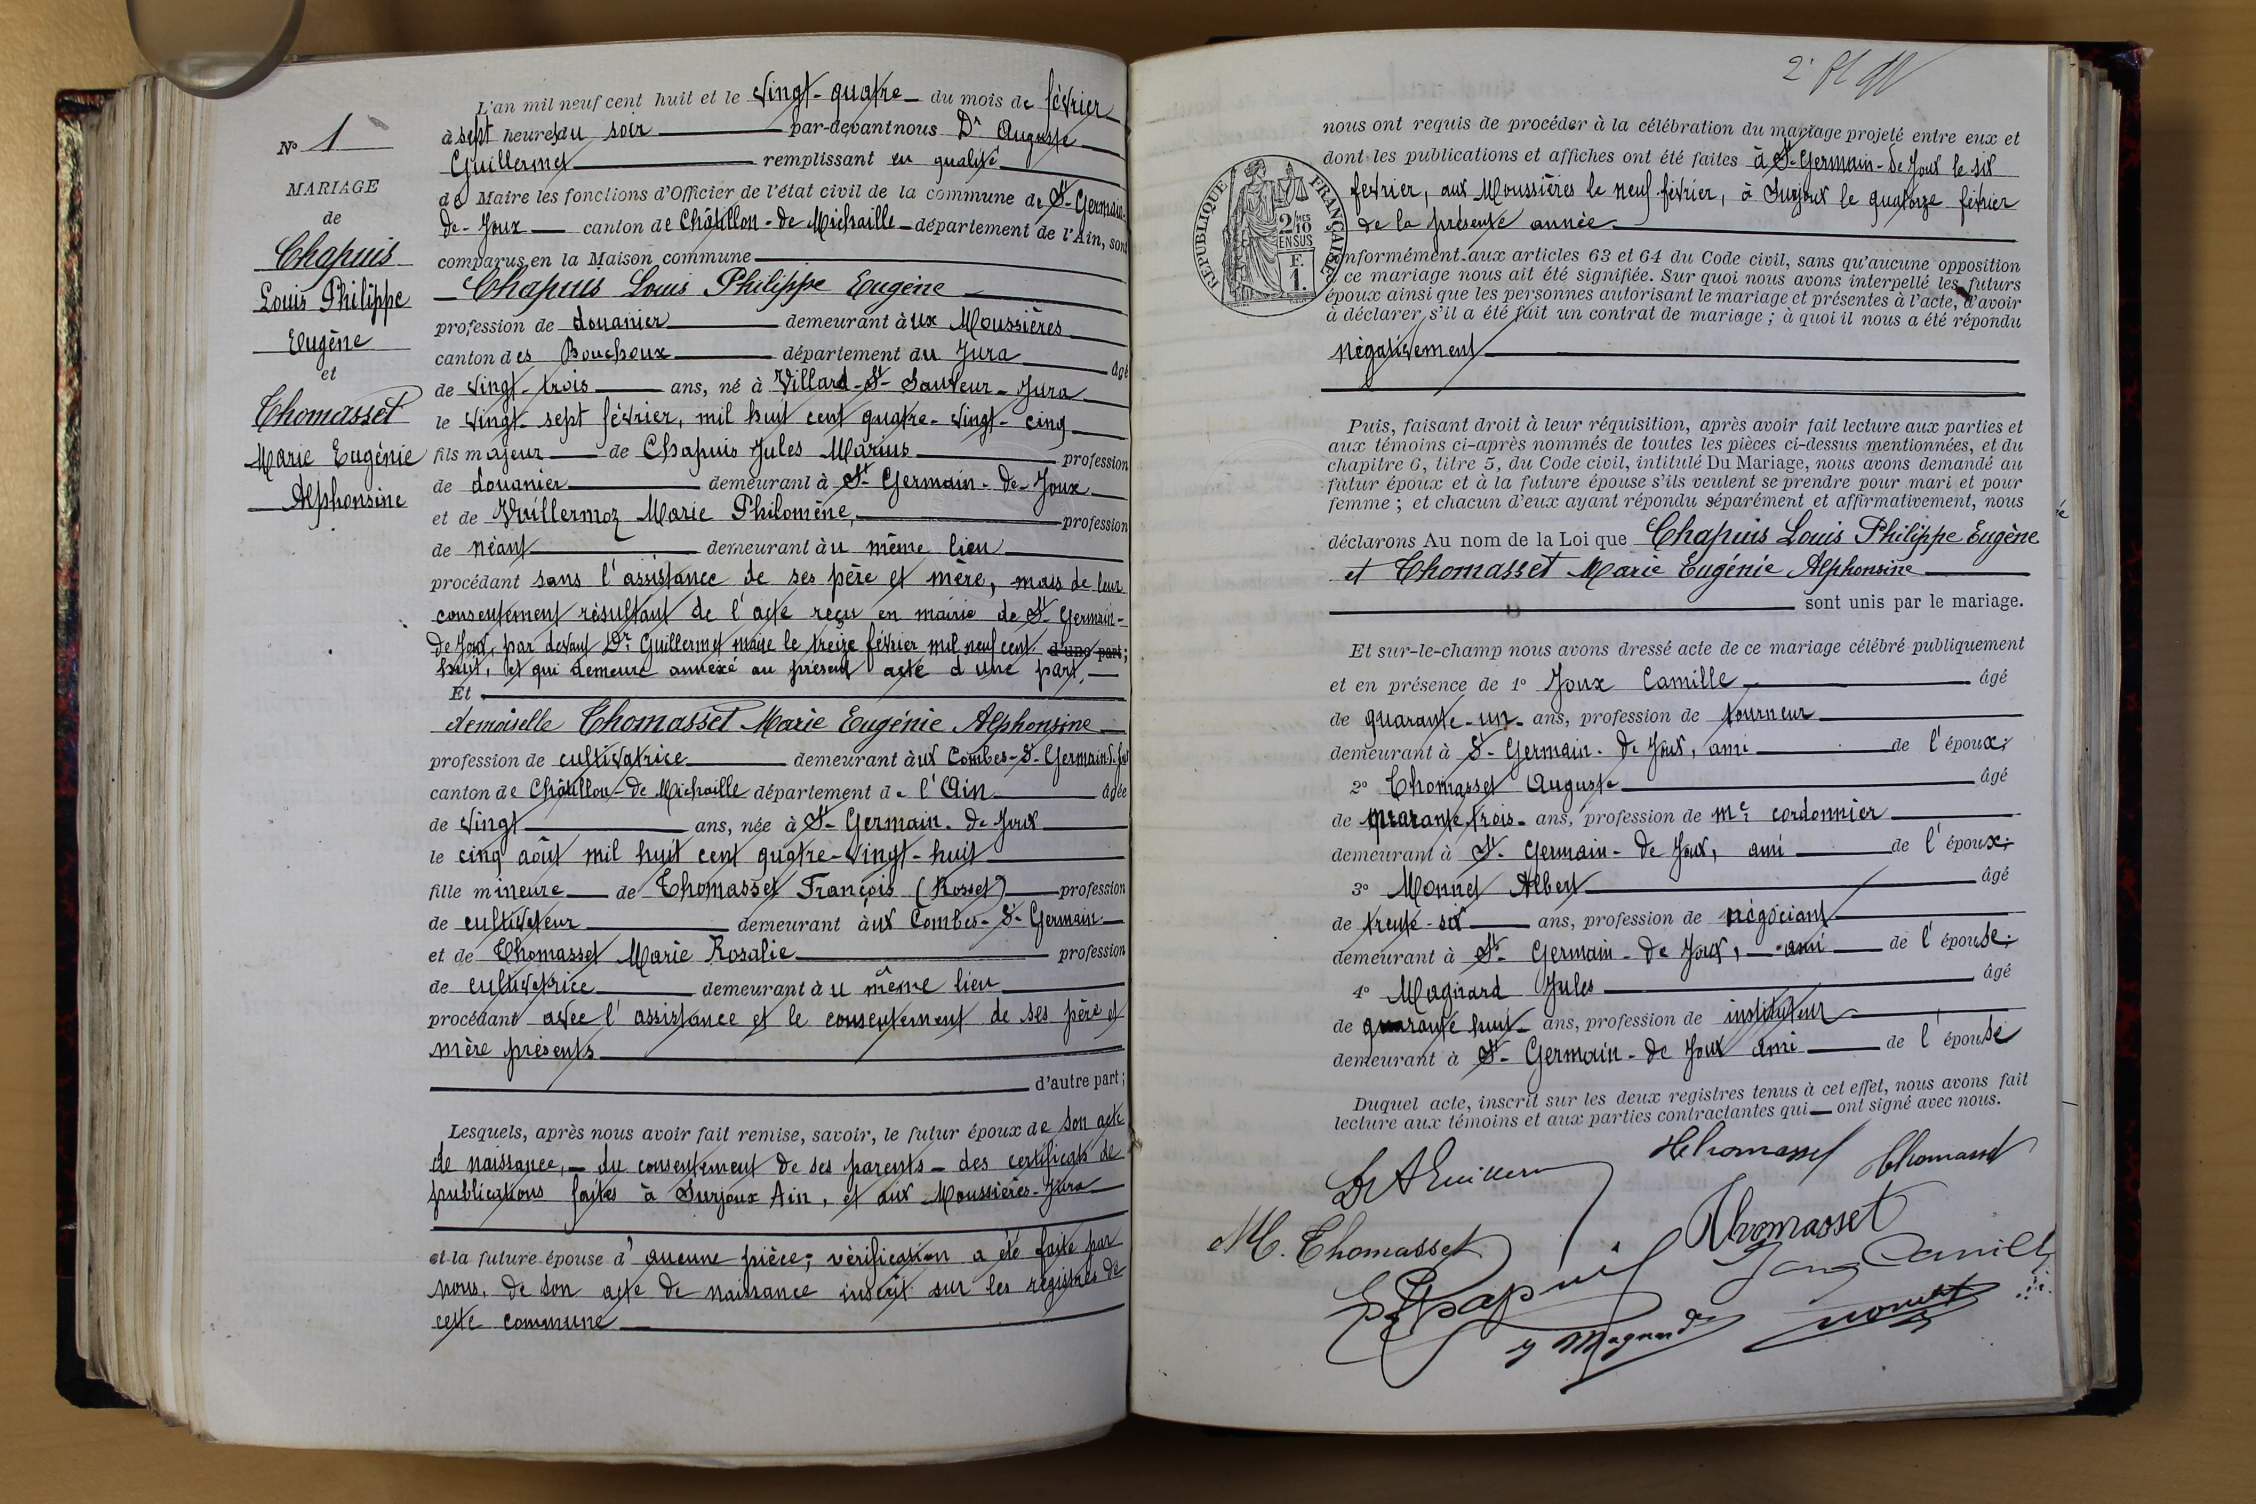 N° 1
MARIAGE
de
Chapuis
Louis Philippe
Eugène
et
Thomasset
Marie Eugénie
Alphonsine
L'an mil neuf cent huit et le vingt-quatre du mois de février
à sept heures du soir par-devant nous Dr Auguste
Guillermet remplissant en qualité
de Maire les fonctions d'Officier de l'état civil de la commune de St-Germain-
de-Joux canton de Châtillon-de-Michaille département de l'Ain, sont
comparus en la Maison commune
Chapuis Louis Philippe Eugène
profession de douanier demeurant aux Moussières
canton des Bouchoux département du Jura âgé
de vingt-trois ans, né à Villard-St-Sauveur-Jura
le vingt-sept février, mil huit cent quatre-vingt-cinq
fils majeur de Chapuis Jules Marius profession
de douanier demeurant à St Germain-de-Joux
et de Vuillermoz Marie Philomène, profession
de néant demeurant au même lieu
procédant sans l'assistance de ses père et mère, mais de leur
consentement résultant de l'acte reçu en mairie de St Germain-
de Joux, par devant Dr Guillermet maire le treize février mil neuf cent d'une part;
huit, et qui demeure annexé au présent acte d'une part,
Et
demoiselle Thomasset Marie Eugénie Alphonsine
profession de cultivatrice demeurant aux Combes-St-Germain
canton de Châtillon-de-Michaille département de l'Ain âgée
de vingt ans, née à St-Germain-de-Joux
le cinq août mil huit cent quatre-vingt-huit
fille mineure de Thomasset François (Rosset) profession
de cultivateur demeurant aux Combes-St-Germain
et de Thomasset Marie Rosalie profession
de cultivatrice demeurant au même lieu
procédant avec l'assistance et le consentement de ses père et
mère présents
d'autre part;
Lesquels, après nous avoir fait remise, savoir, le futur époux de son acte
de naissance, - du consentement de ses parents - des certificats de
publications faites à Surjoux Ain, et aux Moussières-Jura
et la future épouse d'aucune pièce; vérification a été faite par
nous, de son acte de naissance inscrit sur les registres de
cette commune
nous ont requis de procéder à la célébration du mariage projeté entre eux et
dont les publications et affiches ont été faites à St-Germain-de-Joux le six
février, aux Moussières le neuf février, à Surjoux le quatorze février
de la présente année
RÉPUBLIQUE FRANÇAISE
2/10 MES
EN SUS
F.
1.
nformément aux articles 63 et 64 du Code civil, sans qu'aucune opposition
ce mariage nous ait été signifiée. Sur quoi nous avons interpellé les futurs
époux ainsi que les personnes autorisant le mariage et présentes à l'acte, d'avoir
à déclarer s'il a été fait un contrat de mariage; à quoi il nous a été répondu
négativement
Puis, faisant droit à leur réquisition, après avoir fait lecture aux parties et
aux témoins ci-après nommés de toutes les pièces ci-dessus mentionnées, et du
chapitre 6, titre 5, du Code civil, intitulé Du Mariage, nous avons demandé au
futur époux et à la future épouse s'ils veulent se prendre pour mari et pour
femme; et chacun d'eux ayant répondu séparément et affirmativement, nous
déclarons Au nom de la Loi que Chapuis Louis Philippe Eugène
et Thomasset Marie Eugénie Alphonsine
sont unis par le mariage.
Et sur-le-champ nous avons dressé acte de ce mariage célébré publiquement
et en présence de 1° Joux Camille âgé
de quarante-un ans, profession de tourneur
demeurant à St-Germain-de Joux, ami de l'époux;
2° Thomasset Auguste âgé
de quarante-trois ans, profession de Me cordonnier
demeurant à St-Germain-de Joux, ami de l'époux;
3° Monnet Albert âgé
de trente-six ans, profession de négociant
demeurant à St-Germain-de Joux, ami de l'épouse;
4° Magnard Jules âgé
de quarante huit ans, profession de instituteur
demeurant à St-Germain-de Joux ami de l'épouse
Duquel acte, inscrit sur les deux registres tenus à cet effet, nous avons fait
lecture aux témoins et aux parties contractantes qui ont signé avec nous.
Thomasset Thomasset
Dr A Guillermet
M. Thomasset Thomasset
E Chapuis Joux Camille
J Magnard Monnet